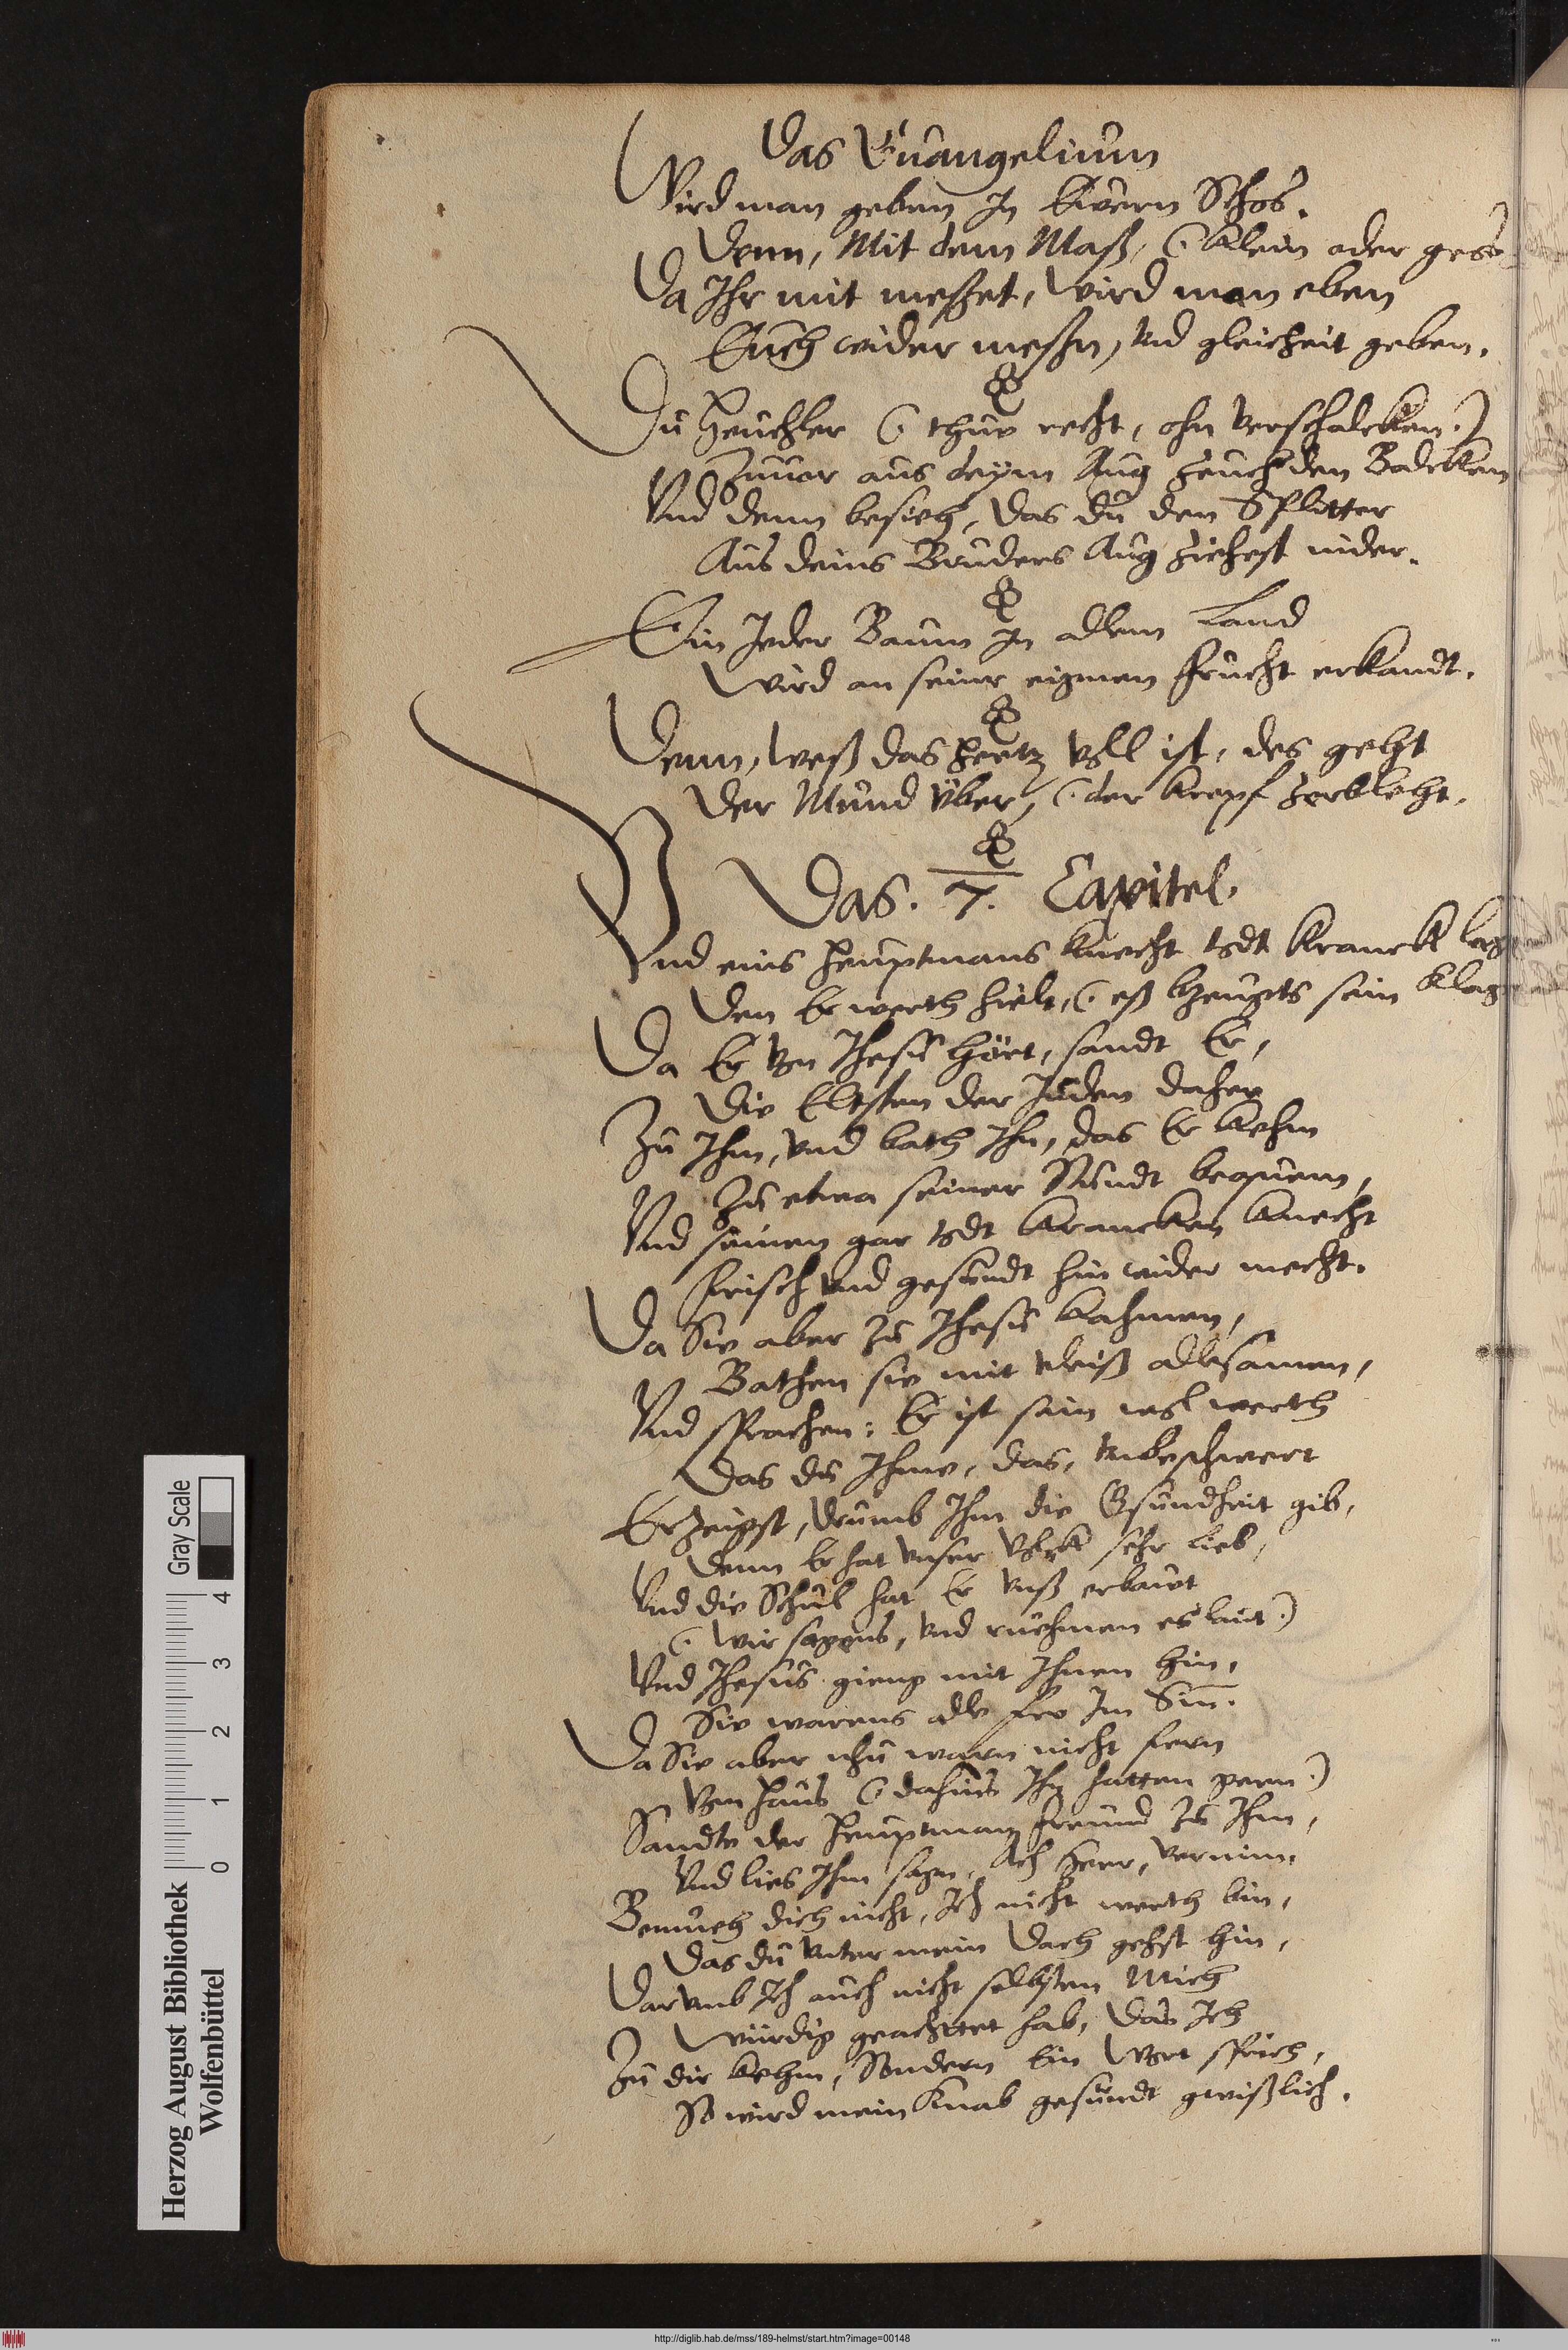 Das Euangelium
Wird man geben In Ewern Schos.
Denn, Mit dem Maß, (. klein oder gros
Da Ihr mit messet, Wird man eben
Euch wider messen, vnd gleicheit geben.
Du Heuchler (. thue recht, ohn verschalcken.)
Zuuor aus deym Aug zeuch den Balcken
Vnd denn besieh, Das du den Splitter
Aus deins Bruders Aug ziehest nider.
Ein Jeder Baum In allem Land
Wird an seiner eignen Frucht erkandt.
Denn, weß das Hertz voll ist, des geht
Der Mund über, (. der kropf
Das. 7. Capitel.
Vnd eins Heuptmans knecht todt kranck lag
Den Er werth hielt, (. eß bzeugts sein klag
Da Er von Ihesu hört, sandt Er,
Die Eltsten der Juden daher
Zu Ihm, vnd bath Ihn, das Er kehm
Zu etwa seiner Stundt bequem,
Vnd seinen gar todt krancken knecht
Frisch vnd gesundt hin wider mecht.
Da Sie aber zu Ihesu kahmen,
Bathen sie mit vleiß allesamen,
Vnd sprachen: Er ist sein wol werth
Das du Ihme, das, vnbeschwert
Erzeigst, drumb Ihm die Gsundheit gib,
Denn Er hat vnser Volck sehr lieb,
Vnd die Schul hat Er vnß erbawt
(. Wir sagens, vnd rühmen es laut.)
Vnd Ihesus gieng mit Ihnen hin,
Sie warens alle fro Im Sin.
Da Sie aber nhu warn nicht fern
Vom Haus (. dahins Ihn hatten gern.)
Sandte der Heuptman freund zu Ihm,
Vnd lies Ihm sagn, Ach Herr, vernim.
Bemueh dich nicht, Ich nicht werth bin,
Das du vnter mein Dach gehst hin,
Darumb Ich auch nicht selbsten Mich
Würdig geachtet hab, das Ich
Zu dir kehm, Sondern Ein Wort sprich,
So wird mein Knab gesundt gwißlich.
Herzog August Bibliothek
Wolfenbüttel
0 1 2 3 4
Gray Scale
http://diglib.hab.de/mss/189-helmst/start.htm?image=00148